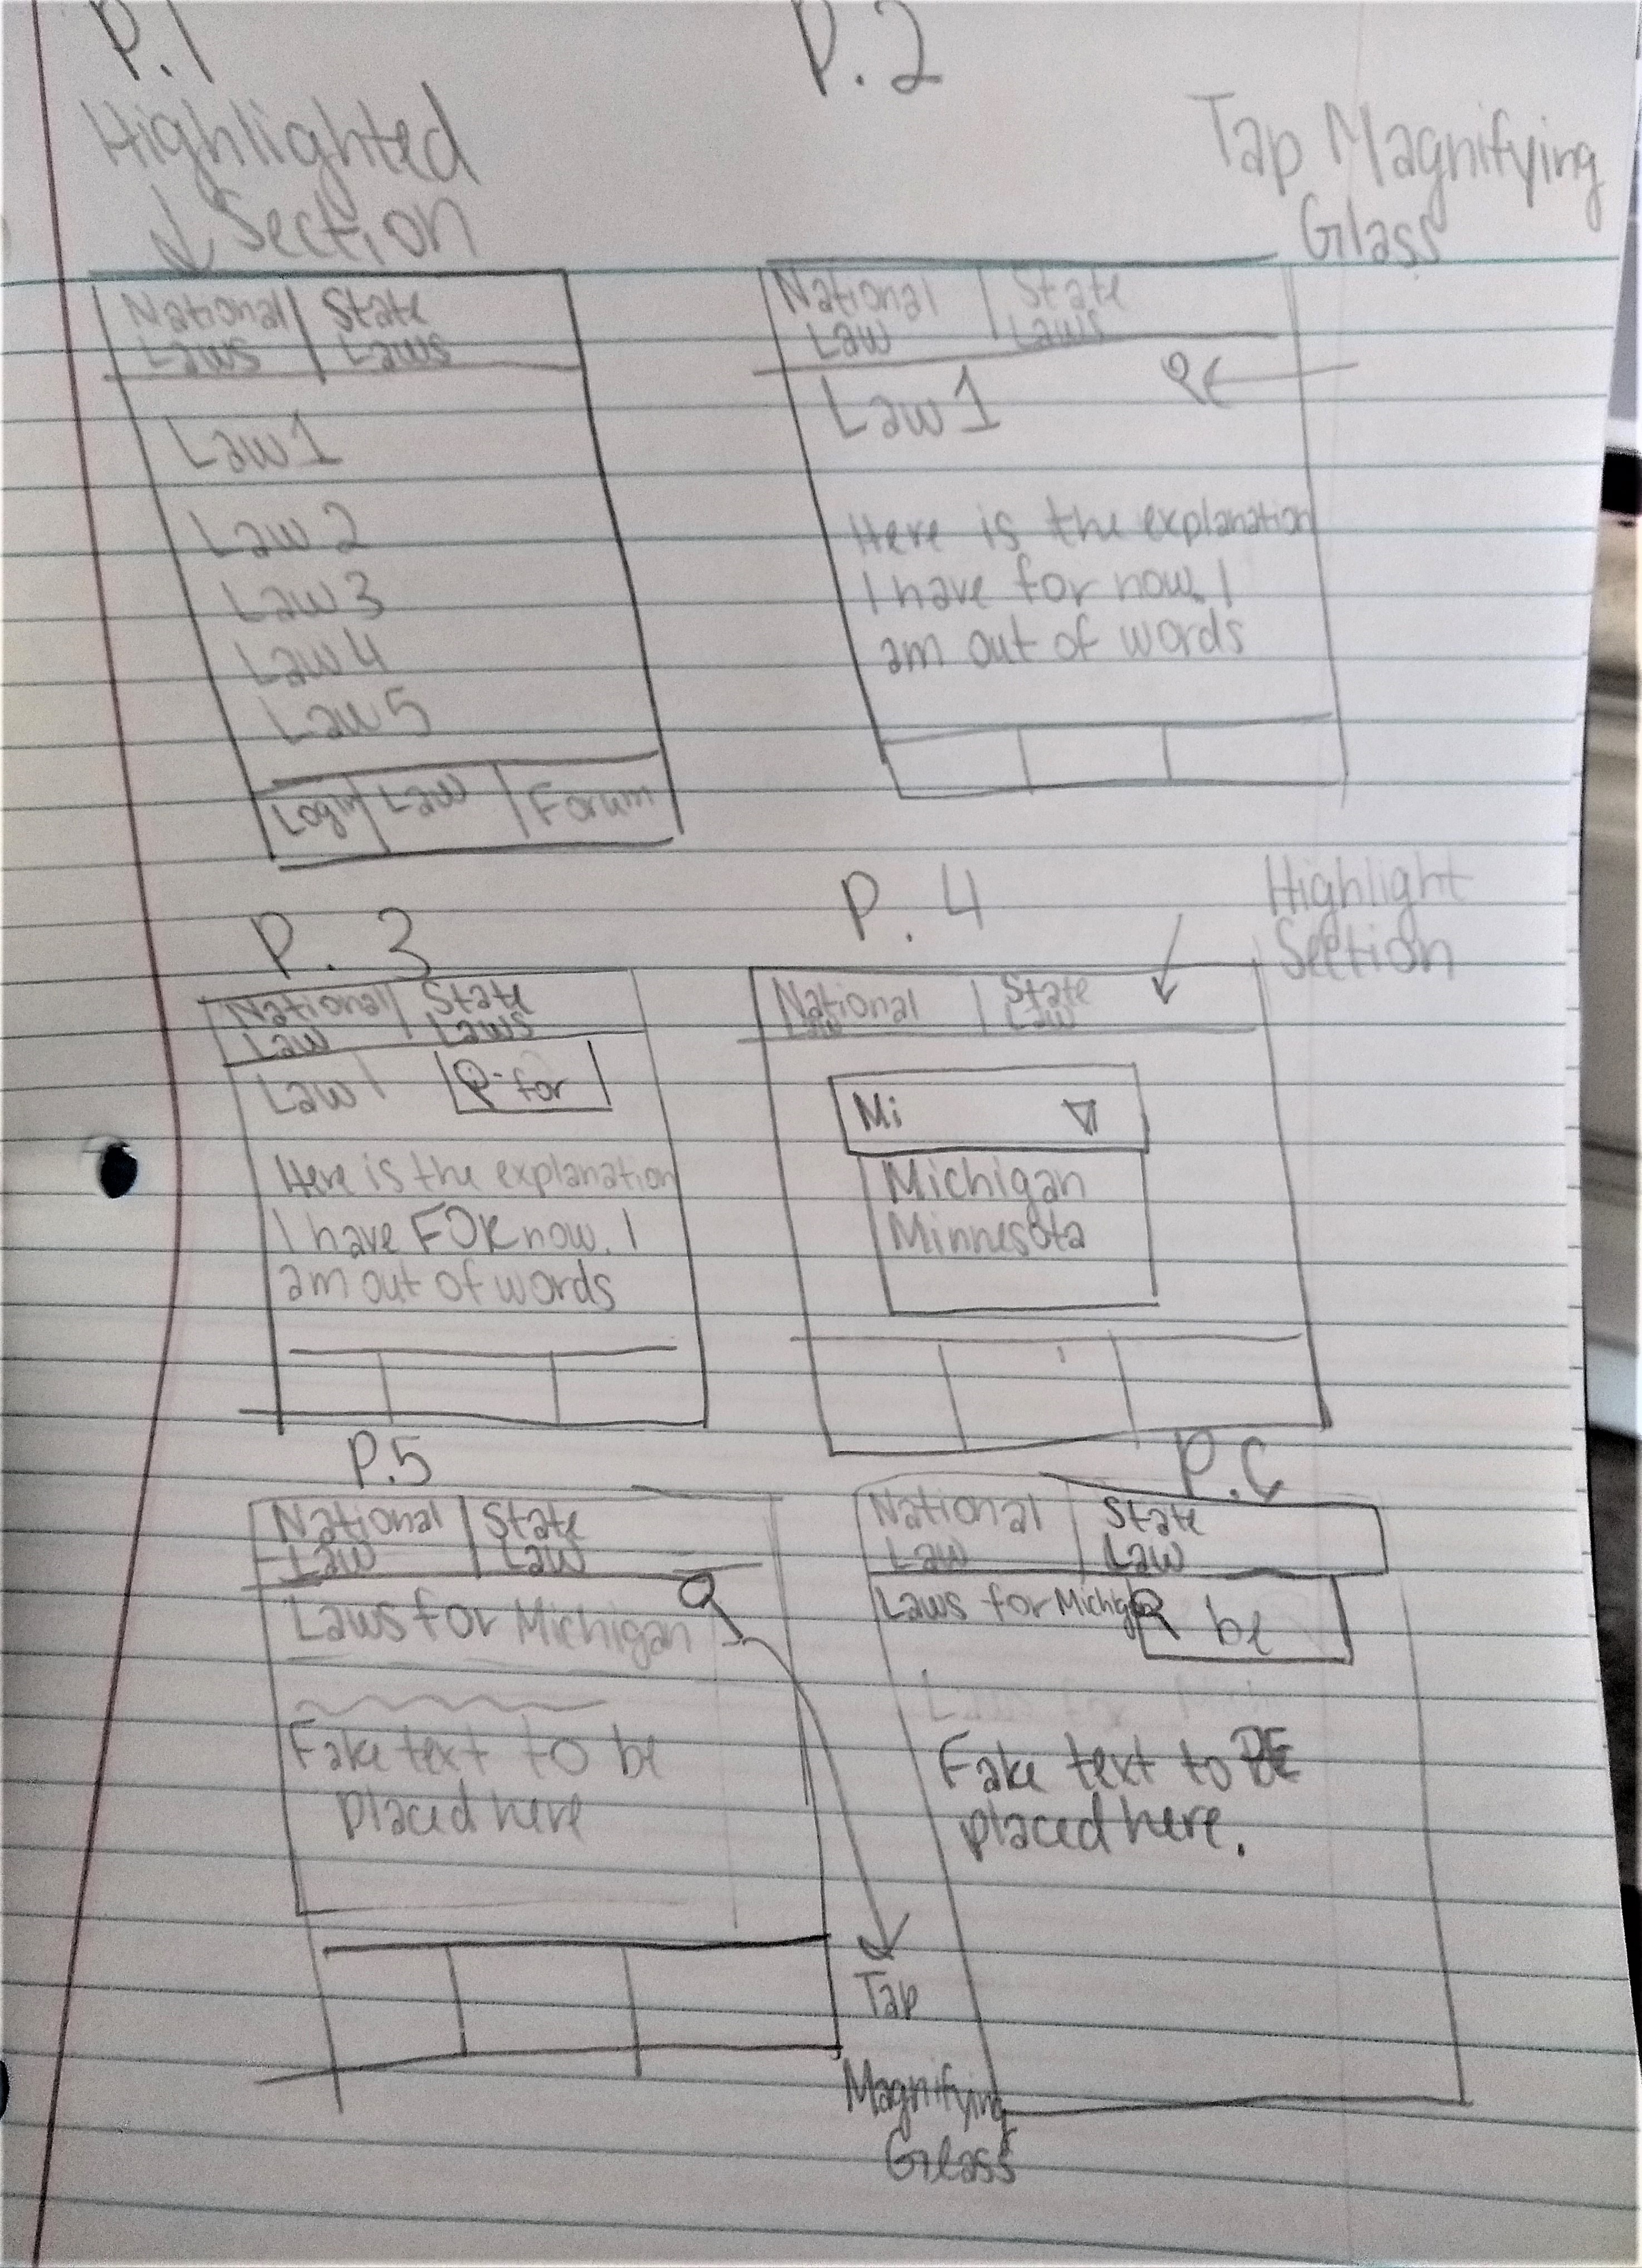 P.1
Highlighted
Section
National
Laws
State
Laws
Law 1
Law 2
Law 3
Law 4
Law 5
Login
Law
Forum
P.2
Tap Magnifying
Glass
National
Law
State
Laws
Law 1
Here is the explanation
I have for now. I
am out of words
P. 3
National
Law
State
Laws
Law 1
for
Here is the explanation
I have FOR now. I
am out of words
P. 4
Highlight
Section
National
Law
State
Law
Mi
Michigan
Minnesota
P.5
National
Law
State
Law
Laws for Michigan
Fake text to be
placed here
Tap
Magnifying
Glass
National
Law
State
Law
Laws for Michig
be
Fake text to BE
placed here.